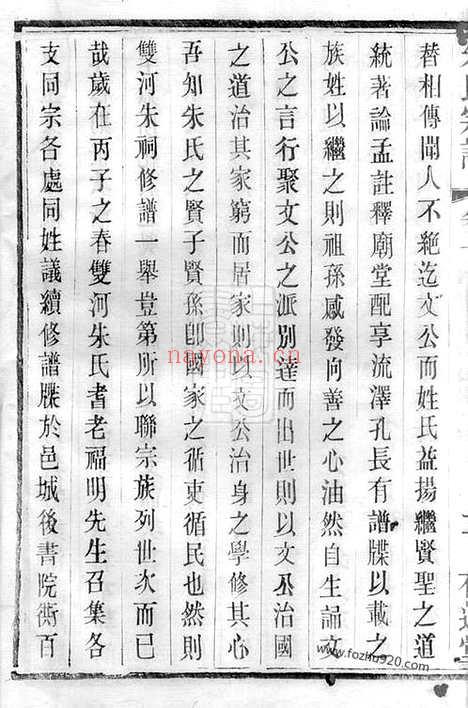 替相傳聞人不絕迄文公而姓氏益揚繼賢聖之道
統著論孟註釋廟堂配享流澤孔長有譜牒以載之
族姓以繼之則祖孫感發向善之心油然自生誦文
公之言行聚文公之派別達而出世則以文公治國
之道治其家窮而居家則以文公治身之學修其心
吾知朱氏之賢子賢孫卽國家之循吏循民也然則
雙河朱祠修譜一舉豈第所以聯宗族列世次而已
哉歲在丙子之春雙河朱氏耆老福明先生召集各
支同宗各處同姓議續修譜牒於邑城後書院街百
nayona.cn
www.fozhu920.com